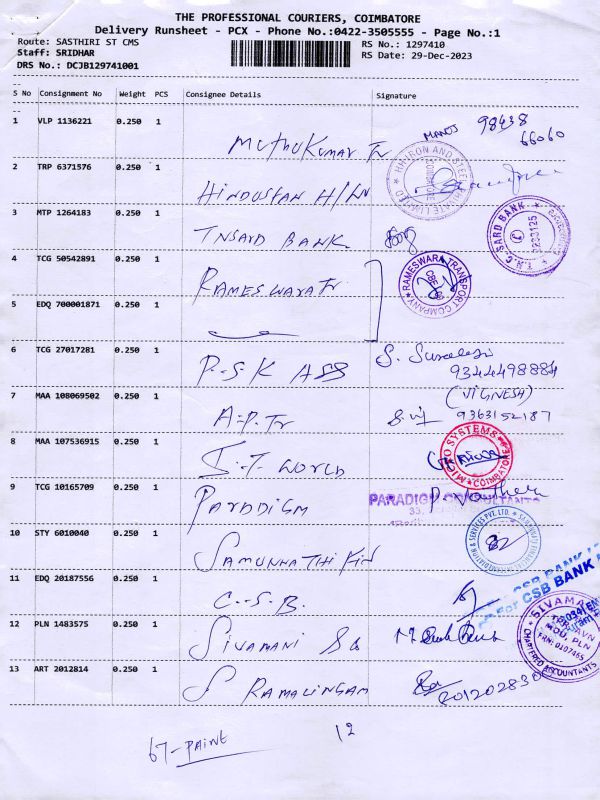 THE PROFESSIONAL COURIERS, COIMBATORE
Delivery Runsheet - PCX - Phone No.:0422-3505555 - Page No.:1
Route: SASTHIRI ST CMS
RS No.: 1297410
Staff: SRIDHAR
RS Date: 29-Dec-2023
DRS No.: DCJB129741001
S No Consignment No Weight PCS Consignee Details Signature
1 VLP 1136221 0.250 1 Muthukumar Tr MANOJ 98438 66060
2 TRP 6371576 0.250 1 HINDUSTAN
3 MTP 1264183 0.250 1 TNSARD BANK
4 TCG 50542891 0.250 1 RAMESWARA Tr RAMESWARA TRANSPORT COMPANY
5 EDQ 700001871 0.250 1
6 TCG 27017281 0.250 1 P-S-K ASS 9344498884
7 MAA 108069502 0.250 1 A-P-Tr (VIGNESH) 9363152187
8 MAA 107536915 0.250 1 I.T. WORLD MICRO SYSTEMS COIMBATORE
9 TCG 10165709 0.250 1 PARADIGM PARADIGM CONSULTANTS
10 STY 6010040 0.250 1 SAMUNNATHI FIN
11 EDQ 20187556 0.250 1 C.S.B. For CSB BANK
12 PLN 1483575 0.250 1 SIVAMANI CHARTERED ACCOUNTANTS
13 ART 2012814 0.250 1 S RAMALINGAM
67-PAINT 12